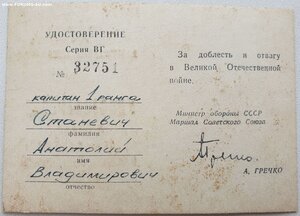 www.FORUMS-su.com
УДОСТОВЕРЕНИЕ
Серия ВГ
№ 32751
капитан 1 ранга
звание
Станевич
фамилия
Анатолий
имя
Владимирович
отчество
За доблесть и отвагу
в Великой Отечественной
войне.
Министр обороны СССР
Маршал Советского Союза
А. ГРЕЧКО